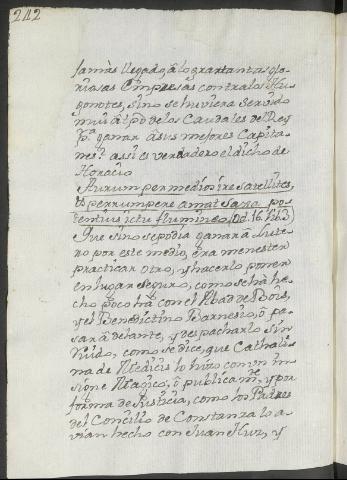 212
Jamàs llegado à lo grar tantas glo-
riosas Empresas contra los Hu-
gonotes, sino se huviera servido
mui à tpo de los Caudales del Rey
pa ganar à sus mejores Capita-
nes; assi es verdadero el dicho de
Horacio
Aurum per medios ire satellites,
Et perrumpere amat saxa po-
tentius ictu fulmineo, Od. 16. lib 3
Que sino se podia ganar à Lute-
ro por este medio, era menester
practicar otro, y hacerlo poner
en lugar seguro, como se ha he-
cho poco hà con el Abad de Bois,
y el Benedictino Barnesio, ò pa-
sar adelante, y despacharlo sin
ruido, como se dice, que Cathali-
na de Medicis lo hizo con un in-
signe Magico, ò publicamte y por
forma de Justicia, como los Padres
del Concilio de Constanza lo a-
vian hecho con Juan Huz, y